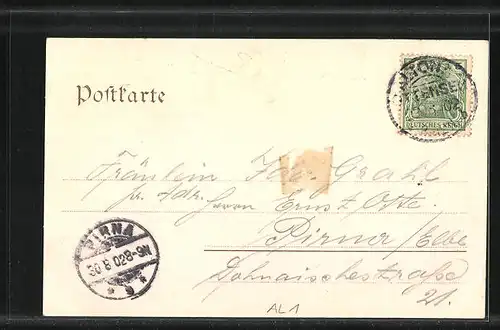 Postkarte
DEUTSCHES REICH
Fräulein Ida Grahl
pr. Adr. Herrn Ernst Otto.
Pirna/Elbe
Dohnaischestraße
21.
PIRNA
30 8 02 8-9N
AL1